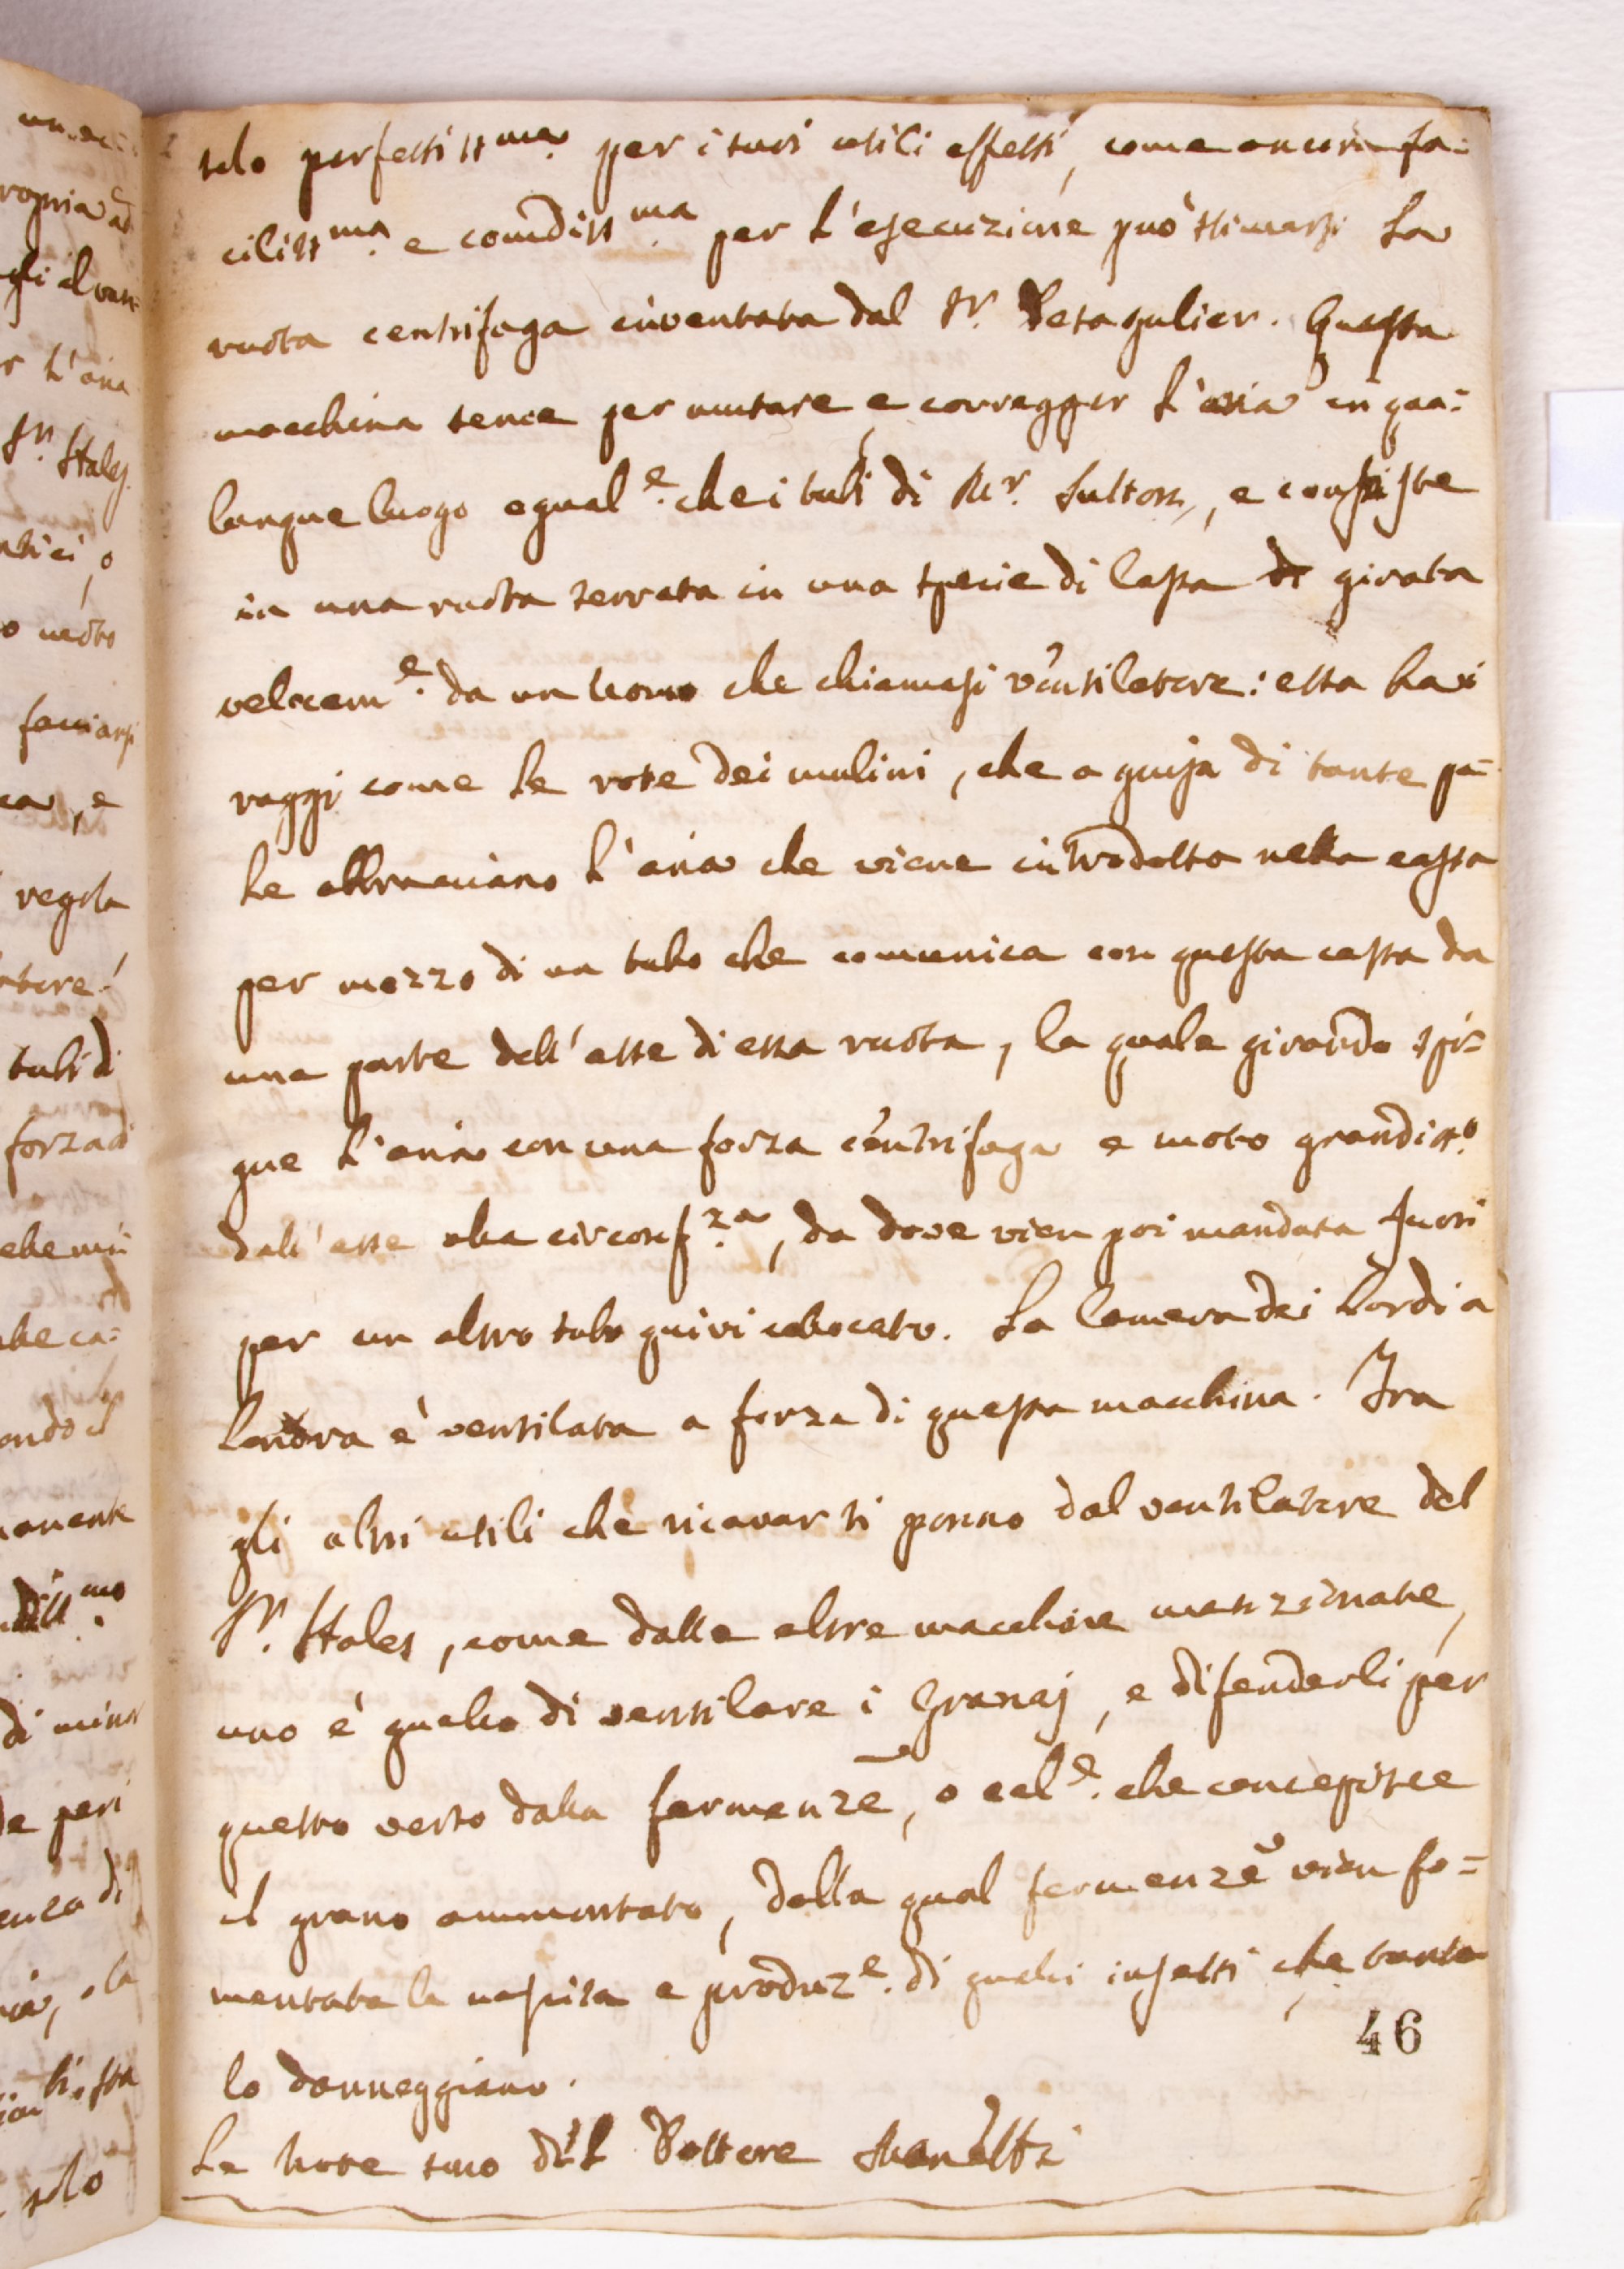 solo perfettiss.ma per i suoi utili effetti, come ancora fa=
ciliss.ma e comdiss.ma per l'esecuzione può stimarsi la
ruota centrifuga inventata dal Sr. Desagulier. Questa
macchina serve per mutare e corregger l'aria in qua=
lunque luogo egual.e che i tubi di Mr. Sutton, e consiste
in una ruota serrata in una specie di Cassa girata
velocem.e da un homo che chiamasi ventilatore: essa ha i
raggi come le rote dei mulini, che a guisa di tante pa=
le abbracciano l'aria che viene introdotta nella cassa
per mezzo di un tubo che comunica con questa cassa da
una parte dell'asse di essa ruota, la quale girando spi=
gne l'aria con una forza centrifuga e moto grandiss.o
dall'asse alla circonf.za, da dove vien poi mandata fuori
per un altro tubo quivi collocato. La Camera dei Lordi a
Londra è ventilata a forza di questa macchina. Tra
gli altri utili che ricavar si ponno dal ventilatore del
Sr. Hales, come dalle altre macchine menzionate,
uno è quello di ventilare i Granaj, e difenderli per
questo verso dalla fermenze, o cal.e che concepisce
il grano ammontato, dalla qual fermenze vien fo=
mentata la nascita e produz.e di quelli insetti che tanto
lo danneggiano.
Le note sono del Dottore Manetti
46
un
ropria ad
gli il van=
r l'aria
Sr. Hales
o
o moto
farsi
e
regola
tore!
tubi di
forza di
che
che ca=
ondo il
di minor
e peri
di
la
solo